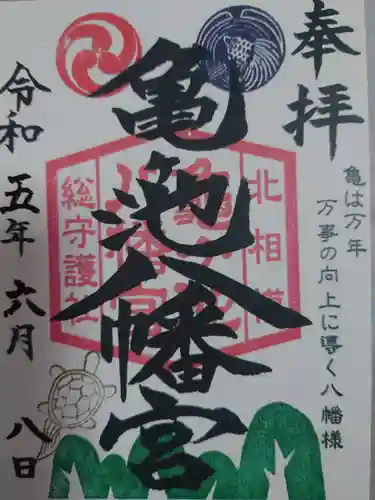 奉拝
亀は万年
万事の向上に導く八幡様
北相模
亀ヶ池
八幡宮
総守護社
亀池八幡宮
令和五年六月八日